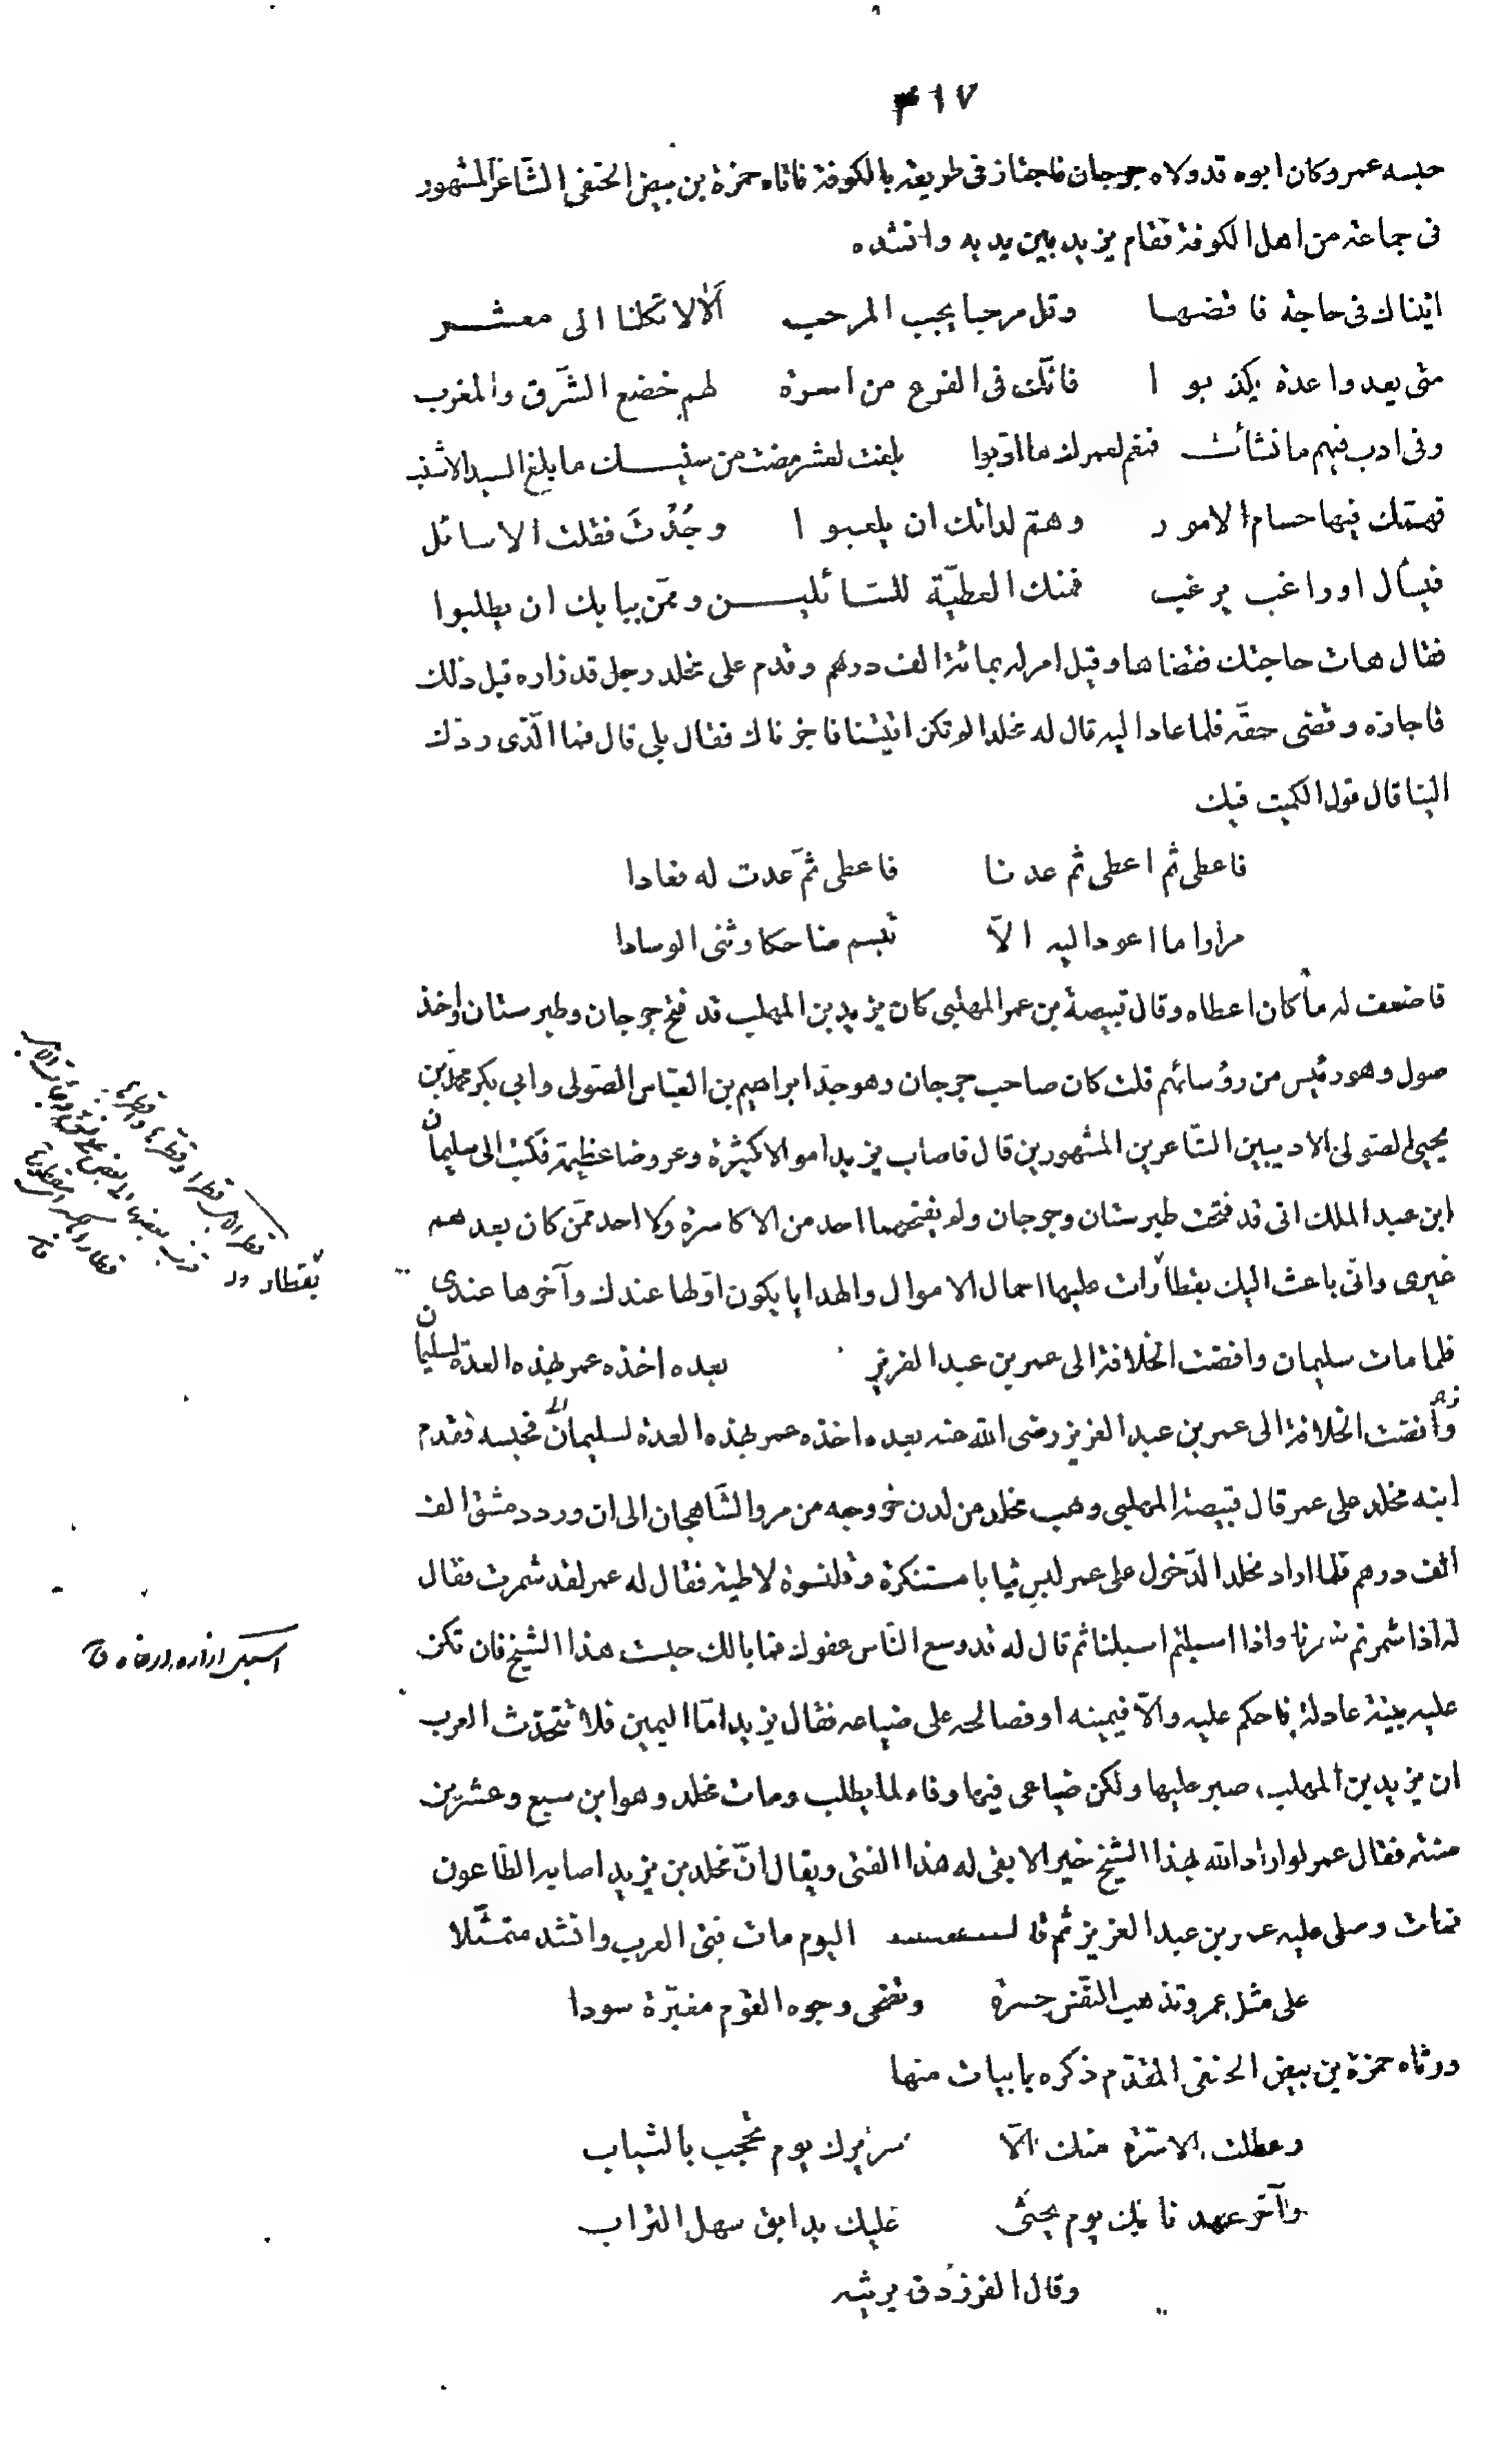 ٣١٧
حبسه عمر وكان ابوه قد ولاه جرجان فاجتاز فى طريقه بالكوفة فاتاه حمزة بن بيض الحنفى الشّاعر المشهور
فى جماعة من اهل الكوفة فقام يزيد بين يديه وانشده
اتيناك فى حاجة فاقضها وقل مرحبا يجب المرحب ألا لا تكلنا الى معشر
متى يعدوا عدة يكذبوا فانّك فى الفرع من اسرة لهم خضع الشّرق والمغرب
وفى ادب فيهم ما نشأت فنعم لعمرك ما ادّبوا بلغت لعشر مضت من سنيك ما يبلغ السيد الاشيب
فهمّك فيها جسام الامور وهمّ لداتك ان يلعبوا وجُدْتَ فقلت الا سائل
فيسأل او راغب يرغب فمنك العطيّة للسّائلين وممّن ببابك ان يطلبوا
فقال هات حاجتك فقضاها وقيل امر له بمائة الف درهم وقدم على مخلد رجل قد زاره قبل ذلك
فاجازه وقضى حقّه فلما عاد اليه قال له مخلد الم تكن اتيتنا فاجزناك فقال بلى قال فما الّذى ردّك
الينا قال قول الكميت فيك
فاعطى ثم اعطى ثم عدنا فاعطى ثمّ عدت له فعادا
مرارا ما اعود اليه الّا تبسم ضاحكا وثنى الوسادا
فاضعف له ما كان اعطاه وقال قبيصة بن عمر المهلبى كان يزيد بن المهلب قد فتح جرجان وطبرستان واخذ
صول وهو رئيس من رؤسائهم قلت كان صاحب جرجان وهو جدّ ابراهيم بن العبّاس الصّولى وابى بكر محمّد بن
يحيى الصّولى الاديبين الشّاعرين المشهورين قال فاصاب يزيد اموالا كثيرة وعروضا عظيمة فكتب الى سليمان
ابن عبد الملك انى قد فتحت طبرستان وجرجان ولم يفتحهما احد من الاكاسرة ولا احد ممّن كان بعدهم
غيرى وانّى باعث اليك بقطارات عليها احمال الاموال والهدايا يكون اوّلها عندك وآخرها عندى
فلما مات سليمان وافضت الخلافة الى عمر بن عبد العزيز بعده اخذه عمر بهذه العدّة لسليمان
وافضت الخلافة الى عمر بن عبد العزيز رضى الله عنه بعده اخذه عمر بهذه العدة لسليمان فحبسه فقدم
ابنه مخلد على عمر قال قبيصة المهلبى وهب مخلد من لدن خروجه من مرو الشّاهجان الى ان ورد دمشق الف
الف درهم فلما اراد مخلد الدّخول على عمر لبس ثيابا مستنكرة وقلنسوة لاطية فقال له عمر لقد شمرت فقال
له اذا شمرتم شمرنا واذا اسبلتم اسبلنا ثم قال له قد وسع النّاس عفوك فما بالك حبست هذا الشيخ فان تكن
عليه بيّنة عادلة فاحكم عليه والّا فيمينه او فصالحه على ضياعه فقال يزيد امّا اليمين فلا تتحدّث العرب
ان يزيد بن المهلب صبر عليها ولكن ضياعى فيها وفاء لما يطلب ومات مخلد وهو ابن سبع وعشرين
سنة فقال عمر لو اراد الله بهذا الشيخ خيرا لابقى له هذا الفتى ويقال انّ مخلد بن يزيد اصابه الطّاعون
فمات وصلى عليه عمر بن عبد العزيز ثم قال اليوم مات فتى العرب وانشد متمثّلا
على مثل عمرو تذهب النّفس حسرة وتضحى وجوه القوم مغبرّة سودا
ورثاه حمزة بن بيض الحنفى المقدّم ذكره بابيات منها
وعطلت الاسرّة منك الّا سريرك يوم تحجب بالثياب
وآخر عهدنا بك يوم يحثى عليك بدابق سهل التراب
وقال الفرزدق يرثيه
بقطار
اسبل ازاره ارخاه ق